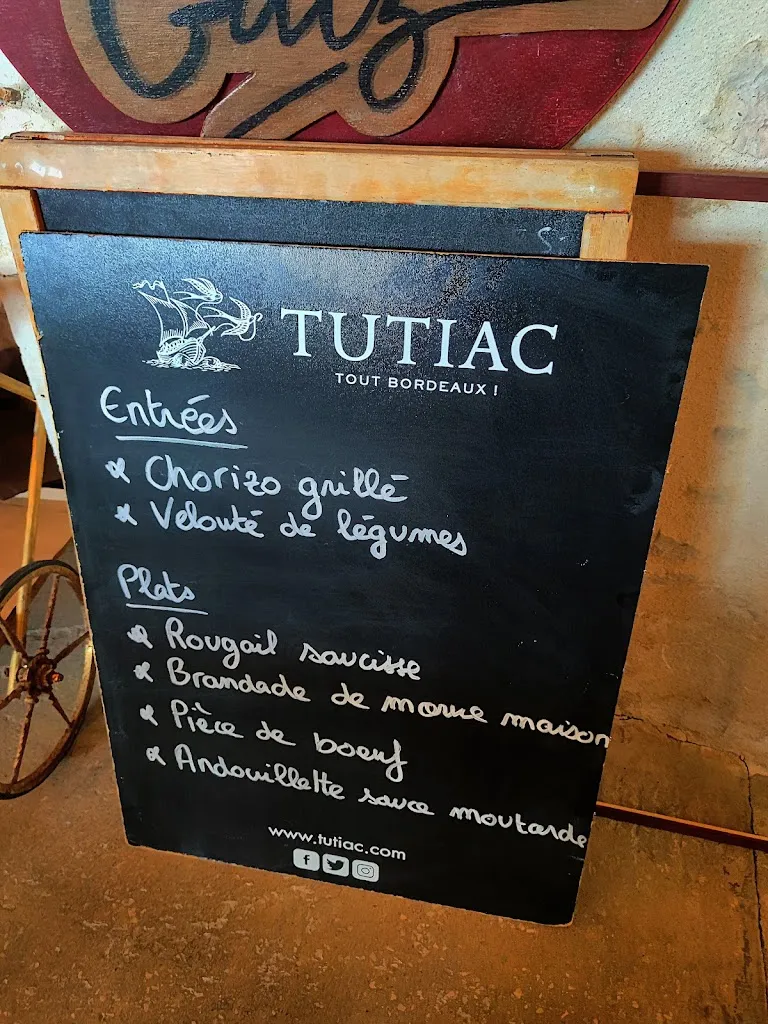 TUTIAC
TOUT BORDEAUX !
Entrées
Chorizo grillé
Velouté de légumes
Plats
Rougail saucisse
Brandade de morue maison
Pièce de boeuf
Andouillette sauce moutarde
www.tutiac.com